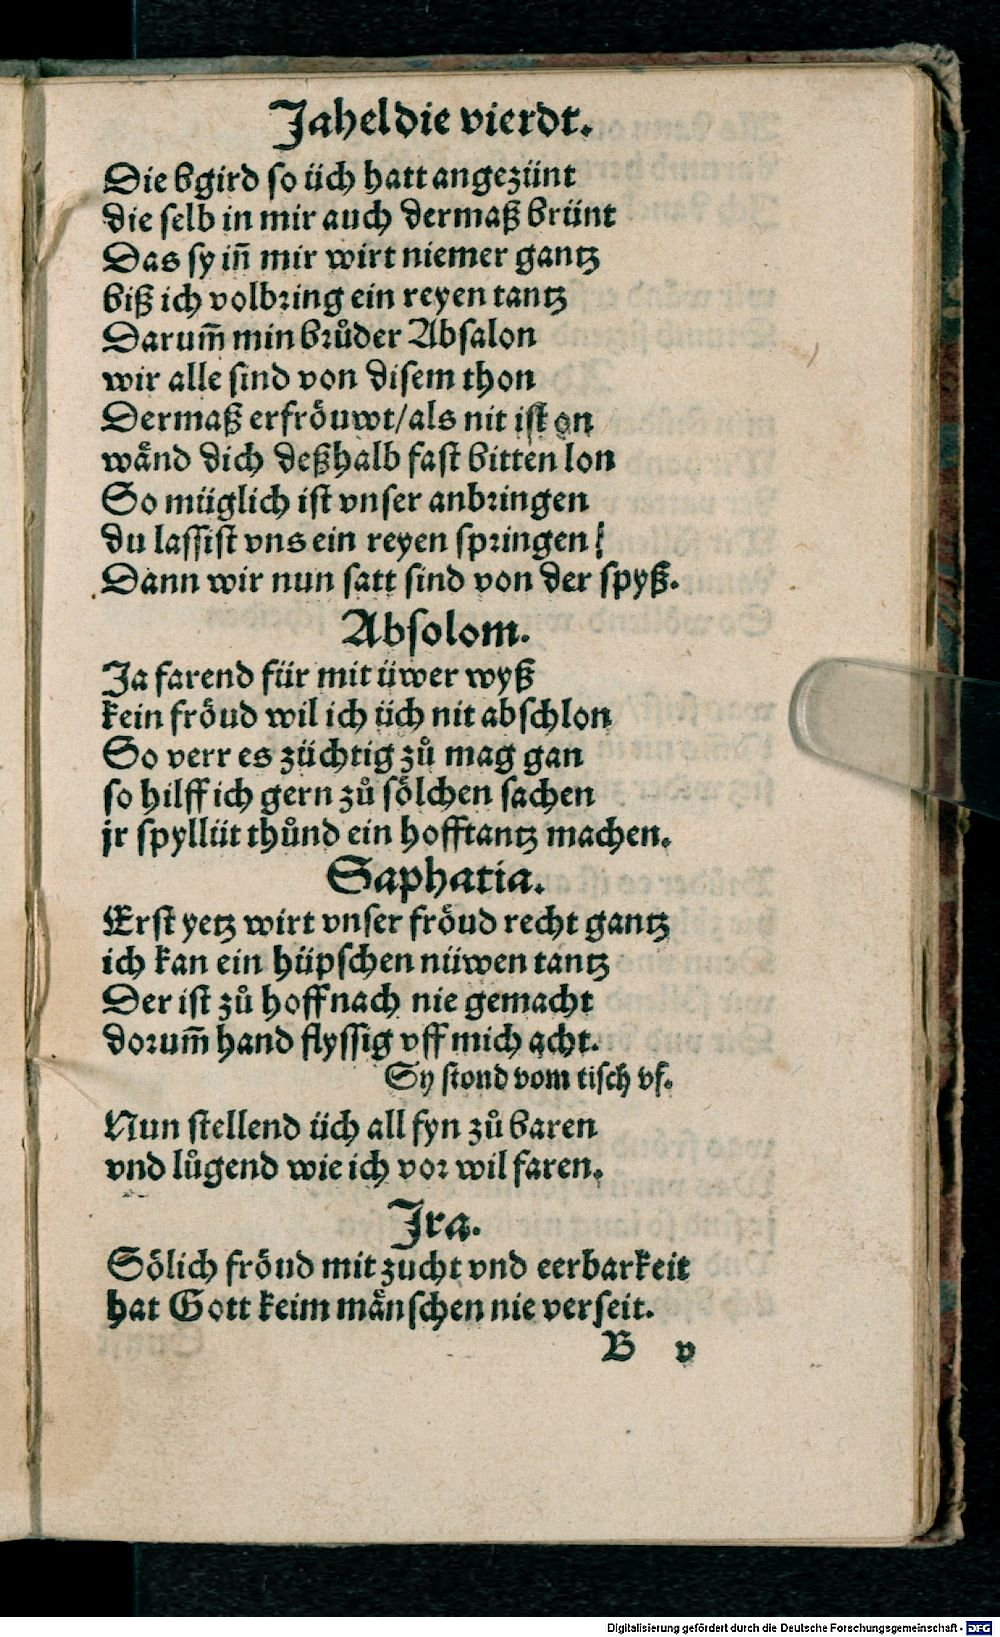 Jahel die vierdt.
Die bgird so üch hatt angezünt
die selb in mir auch dermaß brünt
Das sy in̄ mir wirt niemer gantz
biß ich volbring ein reyen tantz
Darum̄ min brůder Absalon
wir alle sind von disem thon
Dermaß erfröuwt/als nit ist on
wänd dich deßhalb fast bitten lon
So müglich ist vnser anbringen
du lassist vns ein reyen springen!
Dann wir nun satt sind von der spyß.
Absolom.
Ja farend für mit üwer wyß
kein fröud wil ich üch nit abschlon
So verr es züchtig zů mag gan
so hilff ich gern zů sölchen sachen
jr spyllüt thůnd ein hofftantz machen.
Saphatia.
Erst yetz wirt vnser fröud recht gantz
ich kan ein hüpschen nüwen tantz
Der ist zů hoff nach nie gemacht
dorum̄ hand flyssig vff mich acht.
Sy stond vom tisch vf.
Nun stellend üch all fyn zů baren
vnd lůgend wie ich vor wil faren.
Jra.
Sölich fröud mit zucht vnd eerbarkeit
hat Gott keim mänschen nie verseit.
B v
Digitalisierung gefördert durch die Deutsche Forschungsgemeinschaft - DFG